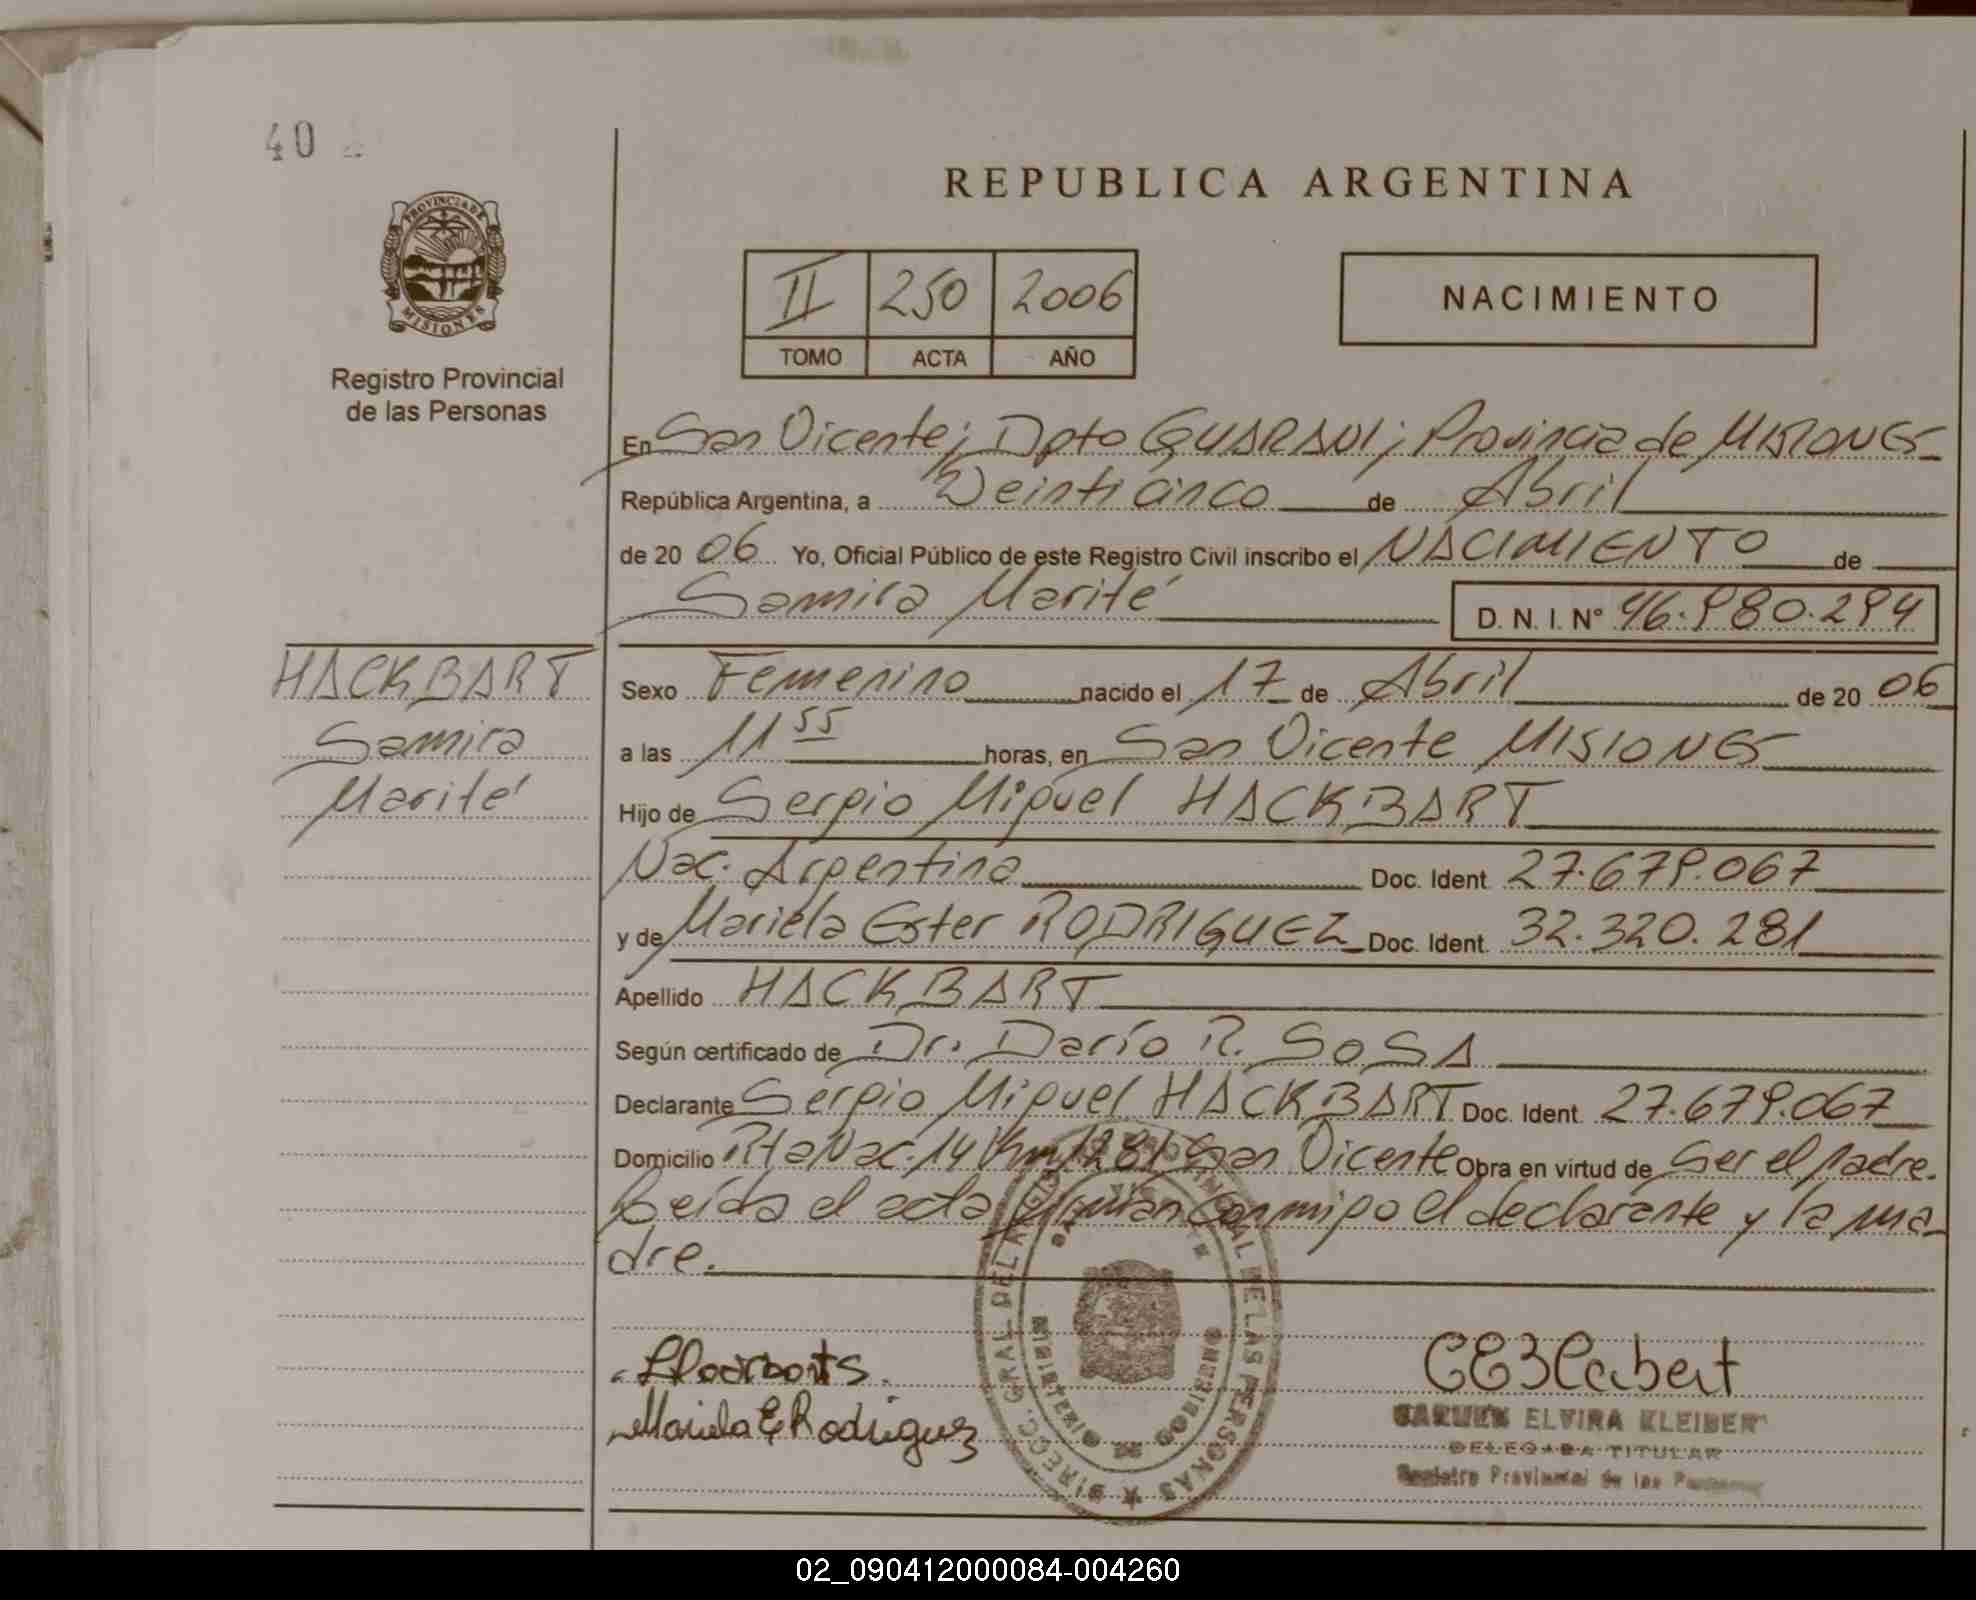 40
REPUBLICA ARGENTINA
PROVINCIA DE
MISIONES
Registro Provincial
de las Personas
II 250 2006
TOMO ACTA AÑO
NACIMIENTO
En San Vicente; Dpto GUARANI; Provincia de MISIONES
República Argentina, a Veinticinco de Abril
de 2006 Yo, Oficial Público de este Registro Civil inscribo el NACIMIENTO de
Samira Marité D. N. I. Nº 46.980.294
HACKBART
Samira
Marité
Sexo Femenino nacido el 17 de Abril de 2006
a las 11 55 horas, en San Vicente MISIONES
Hijo de Sergio Miguel HACKBART
Nac. Argentina Doc. Ident. 27.679.067
y de Mariela Ester RODRIGUEZ Doc. Ident. 32.320.281
Apellido HACKBART
Según certificado de Dr. Darío R. SOSA
Declarante Sergio Miguel HACKBART Doc. Ident. 27.679.067
Domicilio Rta Nac. 14 Km 1281 San Vicente Obra en virtud de Ser el padre.
Leída el acta firman conmigo el declarante y la ma-
dre.
DIRECC. GRAL. DEL REGISTRO PROVINCIAL DE LAS PERSONAS
SAN VICENTE
MINISTERIO DE GOBIERNO
Mariela E Rodriguez
CARMEN ELVIRA KLEIBER
DELEGADA TITULAR
Registro Provincial de las Personas
02_090412000084-004260